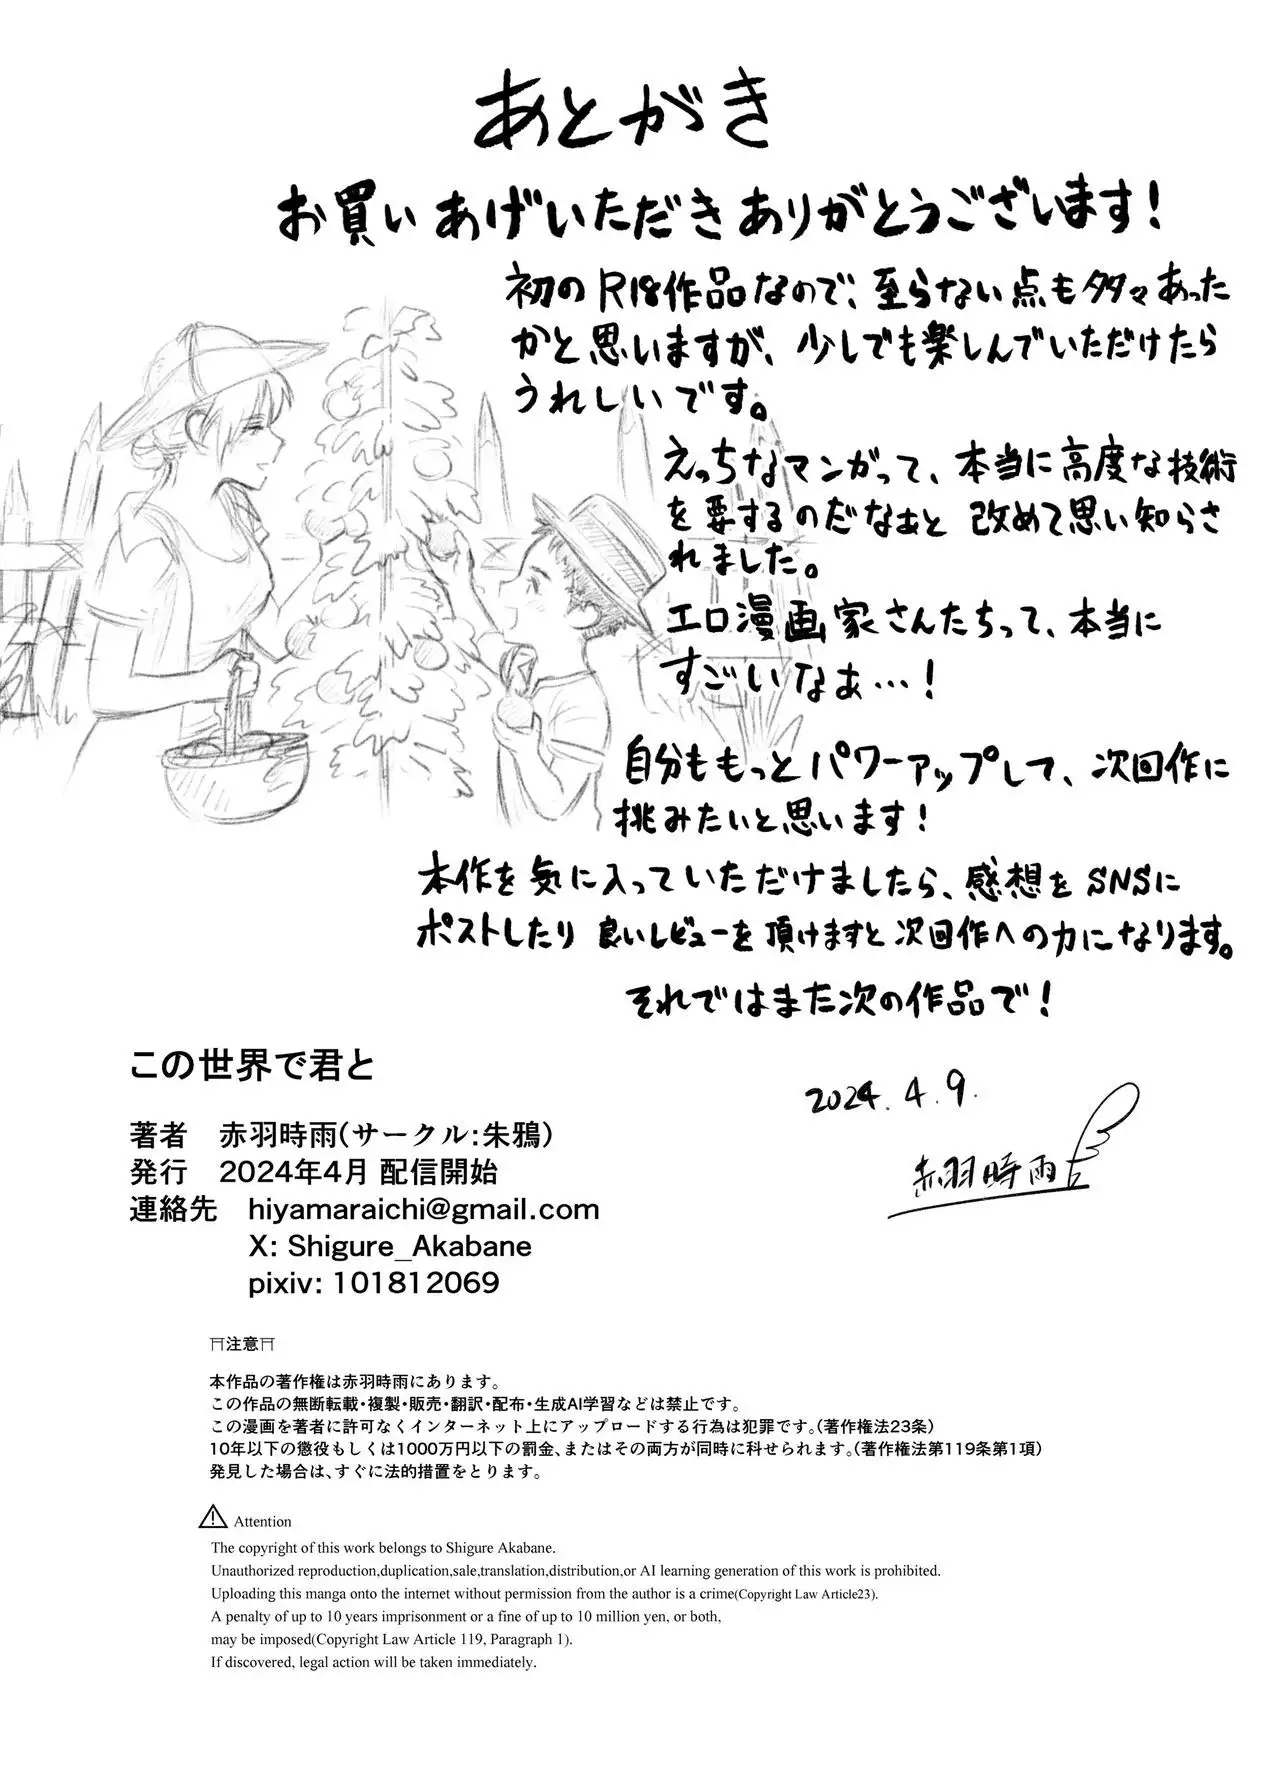 あとがき
お買いあげいただきありがとうございます！
初のR18作品なので、至らない点も多々あった
かと思いますが、少しでも楽しんでいただけたら
うれしいです。
えっちなマンガって、本当に高度な技術
を要するのだなぁと改めて思い知らさ
れました。
エロ漫画家さんたちって、本当に
すごいなぁ…！
自分ももっとパワーアップして、次回作に
挑みたいと思います！
本作を気に入っていただけましたら、感想をSNSに
ポストしたり良いレビューを頂けますと次回作への力になります。
それではまた次の作品で！
2024.4.9.
赤羽時雨
この世界で君と
著者 赤羽時雨(サークル:朱鴉)
発行 2024年4月 配信開始
連絡先 hiyamaraichi@gmail.com
X: Shigure_Akabane
pixiv: 101812069
⛩注意⛩
本作品の著作権は赤羽時雨にあります。
この作品の無断転載・複製・販売・翻訳・配布・生成AI学習などは禁止です。
この漫画を著者に許可なくインターネット上にアップロードする行為は犯罪です。(著作権法23条)
10年以下の懲役もしくは1000万円以下の罰金、またはその両方が同時に科せられます。(著作権法第119条第1項)
発見した場合は、すぐに法的措置をとります。
⚠ Attention
The copyright of this work belongs to Shigure Akabane.
Unauthorized reproduction,duplication,sale,translation,distribution,or AI learning generation of this work is prohibited.
Uploading this manga onto the internet without permission from the author is a crime(Copyright Law Article23).
A penalty of up to 10 years imprisonment or a fine of up to 10 million yen, or both,
may be imposed(Copyright Law Article 119, Paragraph 1).
If discovered, legal action will be taken immediately.